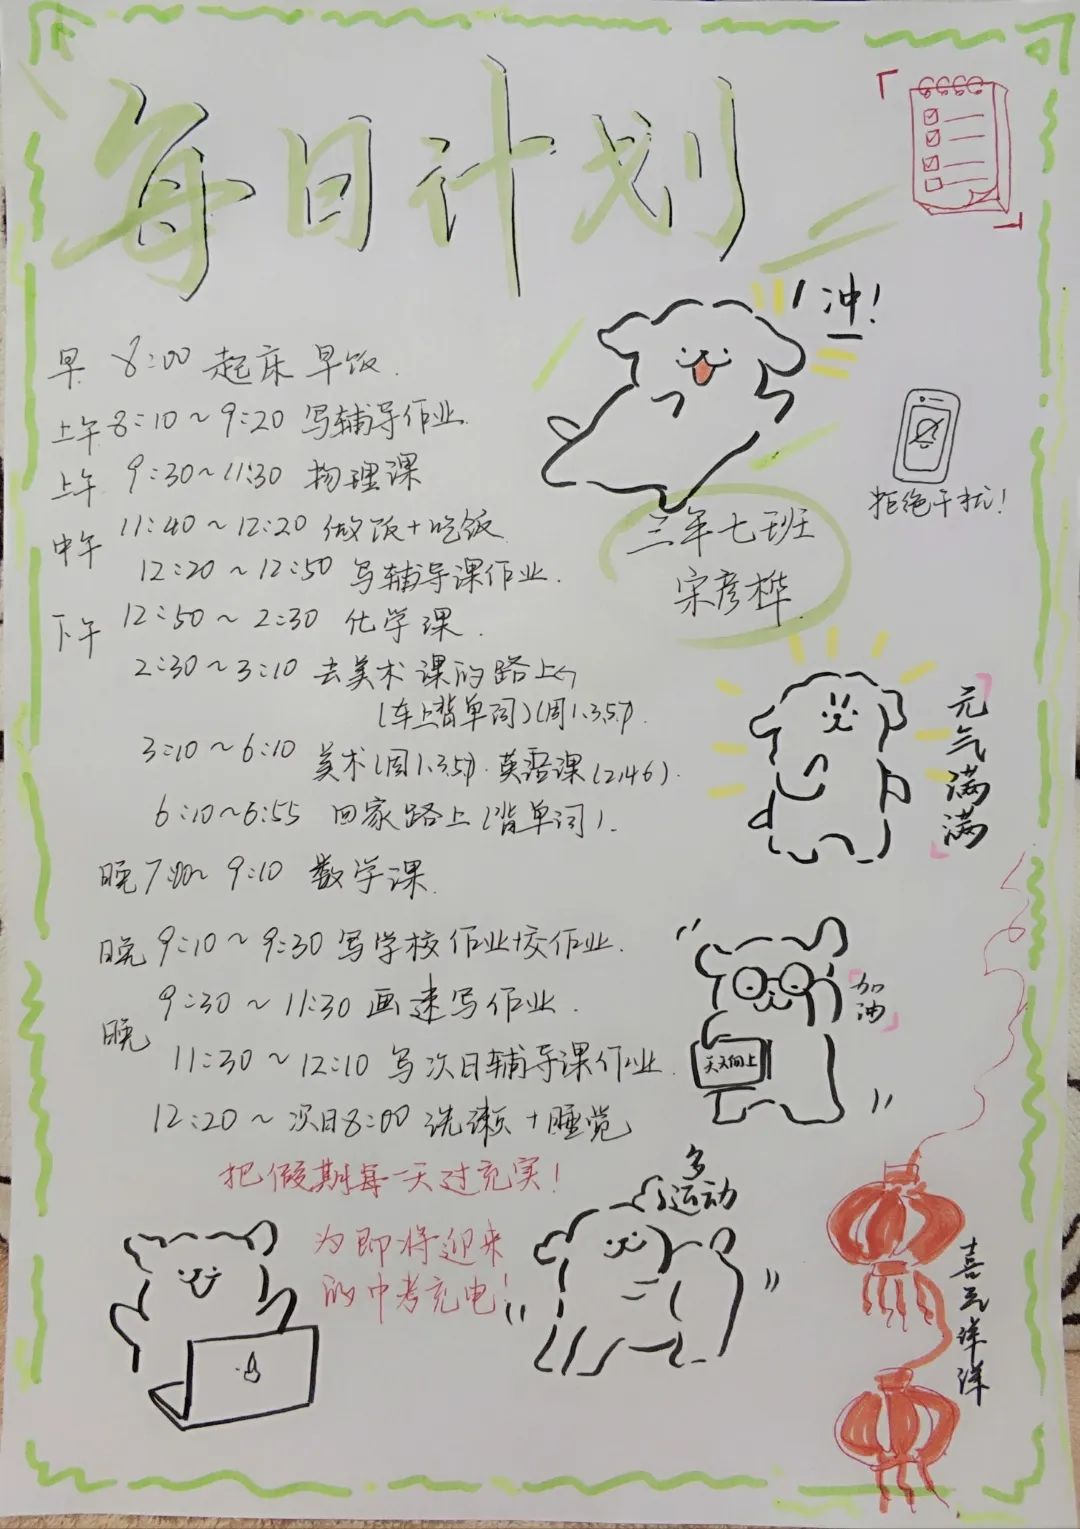 每日计划
冲!
早 8:00 起床 早饭.
上午 8:10~9:20 写辅导作业.
上午 9:30~11:30 物理课
拒绝干扰!
中午 11:40~12:20 做饭+吃饭.
12:20~12:50 写辅导课作业.
三年七班
宋彦桦.
下午 12:50~2:30 化学课.
2:30~3:10 去美术课的路上
(车上背单词)(周1.3.5.7).
3:10~6:10 美术(周1.3.5.7).英语课(2.4.6).
6:10~6:55 回家路上(背单词).
元气满满
晚 7:00~9:10 数学课.
晚 9:10~9:30 写学校作业+交作业.
晚 9:30~11:30 画速写作业.
加油
天天向上
11:30~12:10 写次日辅导课作业.
12:20~次日8:00 洗漱+睡觉
把假期每一天过充实!
为即将迎来
的中考充电!
多运动
喜气洋洋